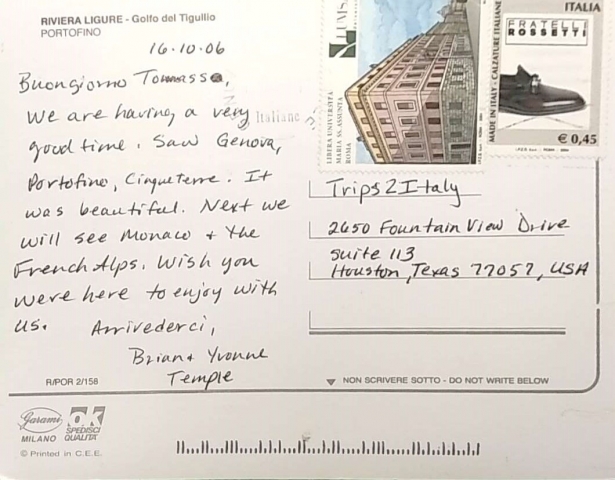 RIVIERA LIGURE - Golfo del Tigullio
PORTOFINO
16.10.06
Buongiorno Tomasso,
We are having a very
good time. Saw Genova,
Portofino, Cinque Terre. It
was beautiful. Next we
will see Monaco + the
French Alps. Wish you
were here to enjoy with
us. Arrivederci,
Brian + Yvonne
Temple
R/POR 2/158
Garami
MILANO
OK
SPEDISCI
QUALITA'
© Printed in C.E.E.
Italiane
LUMSA
LIBERA UNIVERSITA
MARIA SS. ASSUNTA
ROMA
ITALIA
FRATELLI
ROSSETTI
MADE IN ITALY - CALZATURE ITALIANE
€ 0,45
Trips 2 Italy
2650 Fountain View Drive
suite 113
Houston, Texas 77057, USA
NON SCRIVERE SOTTO - DO NOT WRITE BELOW